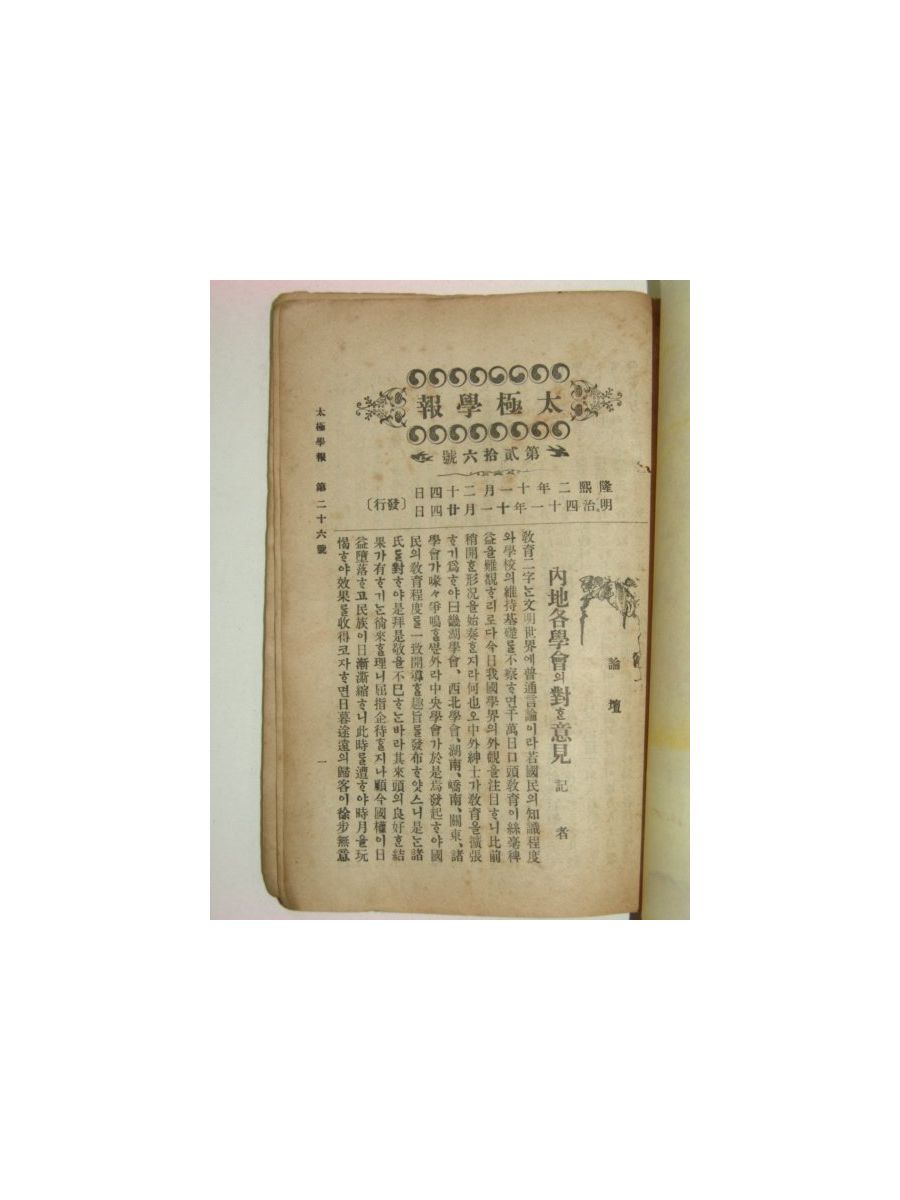 太極學報
第貳拾六號
隆熙二年十一月二十四日
明治四十一年十一月廿四日
〔發行〕
論壇
內地各學會의對ᄒᆞᆫ意見
記者
敎育二字ᄂᆞᆫ文明世界에普通言論이라若國民의知識程度
와學校의維持基礎ᄅᆞᆯ不察ᄒᆞ면千萬日口頭敎育이絲毫裨
益을難覩ᄒᆞ리로다今日我國學界의外觀을注目ᄒᆞ니比前
稍開ᄒᆞᆫ形况을始奏ᄒᆞᆯ지라何也오中外紳士가敎育을擴張
ᄒᆞ기爲ᄒᆞ야曰畿湖學會、西北學會、湖南、嶠南、關東、諸
學會가喙々爭鳴ᄒᆞᆯᄲᅮᆫ外라中央學會가於是焉發起ᄒᆞ야國
民의敎育程度ᄅᆞᆯ一致開導ᄒᆞᆯ趣旨ᄅᆞᆯ發布ᄒᆞ얏스니是ᄂᆞᆫ諸
氏ᄅᆞᆯ對ᄒᆞ야是拜是敬을不已ᄒᆞᄂᆞᆫ바라其來頭의良好ᄒᆞᆫ結
果가有ᄒᆞ기ᄂᆞᆫ倘來ᄒᆞᆯ理니屈指企待ᄒᆞᆯ지나顧今國權이日
益墮落ᄒᆞ고民族이日漸漸縮ᄒᆞ니此時ᄅᆞᆯ遭ᄒᆞ야時月을玩
愒ᄒᆞ야效果ᄅᆞᆯ收得코자ᄒᆞ면日暮途遠의歸客이徐步無
太極學報 第二十六號
一